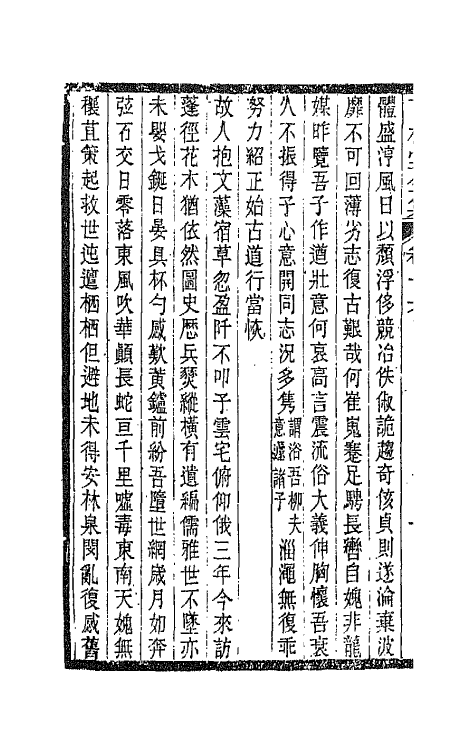 體盛淳風日以頹浮侈競冶佚俶詭趨奇侅貞則遂淪棄波
靡不可回薄劣志復古艱哉何崔嵬蹇足騁長轡自媿非龍
媒昨覽吾子作遒壯意何哀高言震流俗大義伸胸懷吾衰
久不振得子心意開同志況多雋謂浴吾柳夫意嬺諸子淄澠無復乖
努力紹正始古道行當恢
故人抱文藻宿草忽盈阡不叩子雲宅俯仰俄三年今來訪
蓬徑花木猶依然圖史歷兵燹縱橫有遺編儒雅世不墜亦
未嬰戈鋋日晏具杯勺感歎黃鑪前紛吾墮世網歲月如奔
弦百交日零落東風吹華顛長蛇亘千里噓毒東南天媿無
穰苴策起救世迍邅栖栖但避地未得安林泉閔亂復感舊